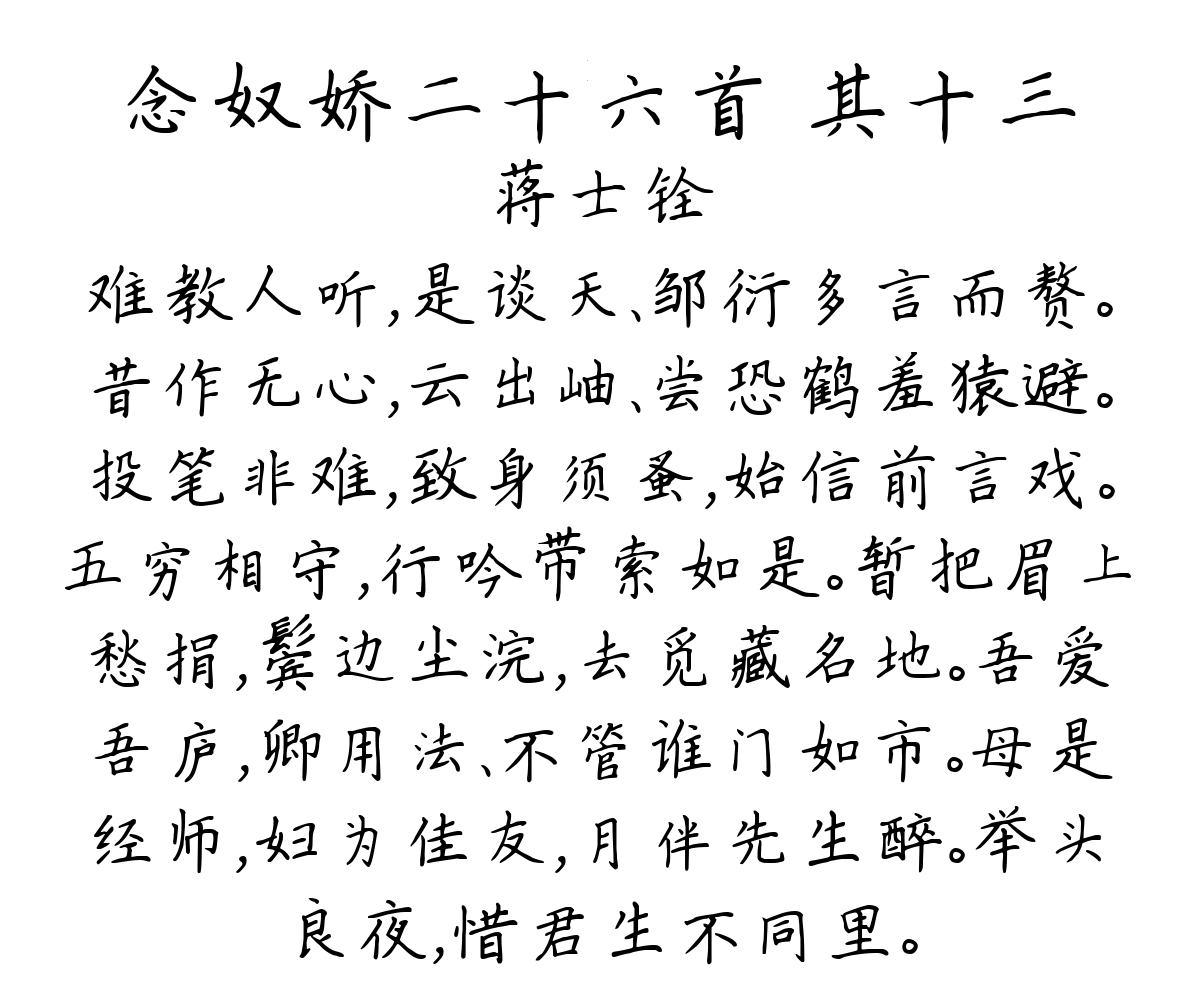 念奴娇二十六首 其十三
蒋士铨
难教人听,是谈天、邹衍多言而赘。
昔作无心,云出岫、尝恐鹤羞猿避。
投笔非难,致身须蚤,始信前言戏。
五穷相守,行吟带索如是。暂把眉上
愁捐,鬓边尘浣,去觅藏名地。吾爱
吾庐,卿用法、不管谁门如市。母是
经师,妇为佳友,月伴先生醉。举头
良夜,惜君生不同里。